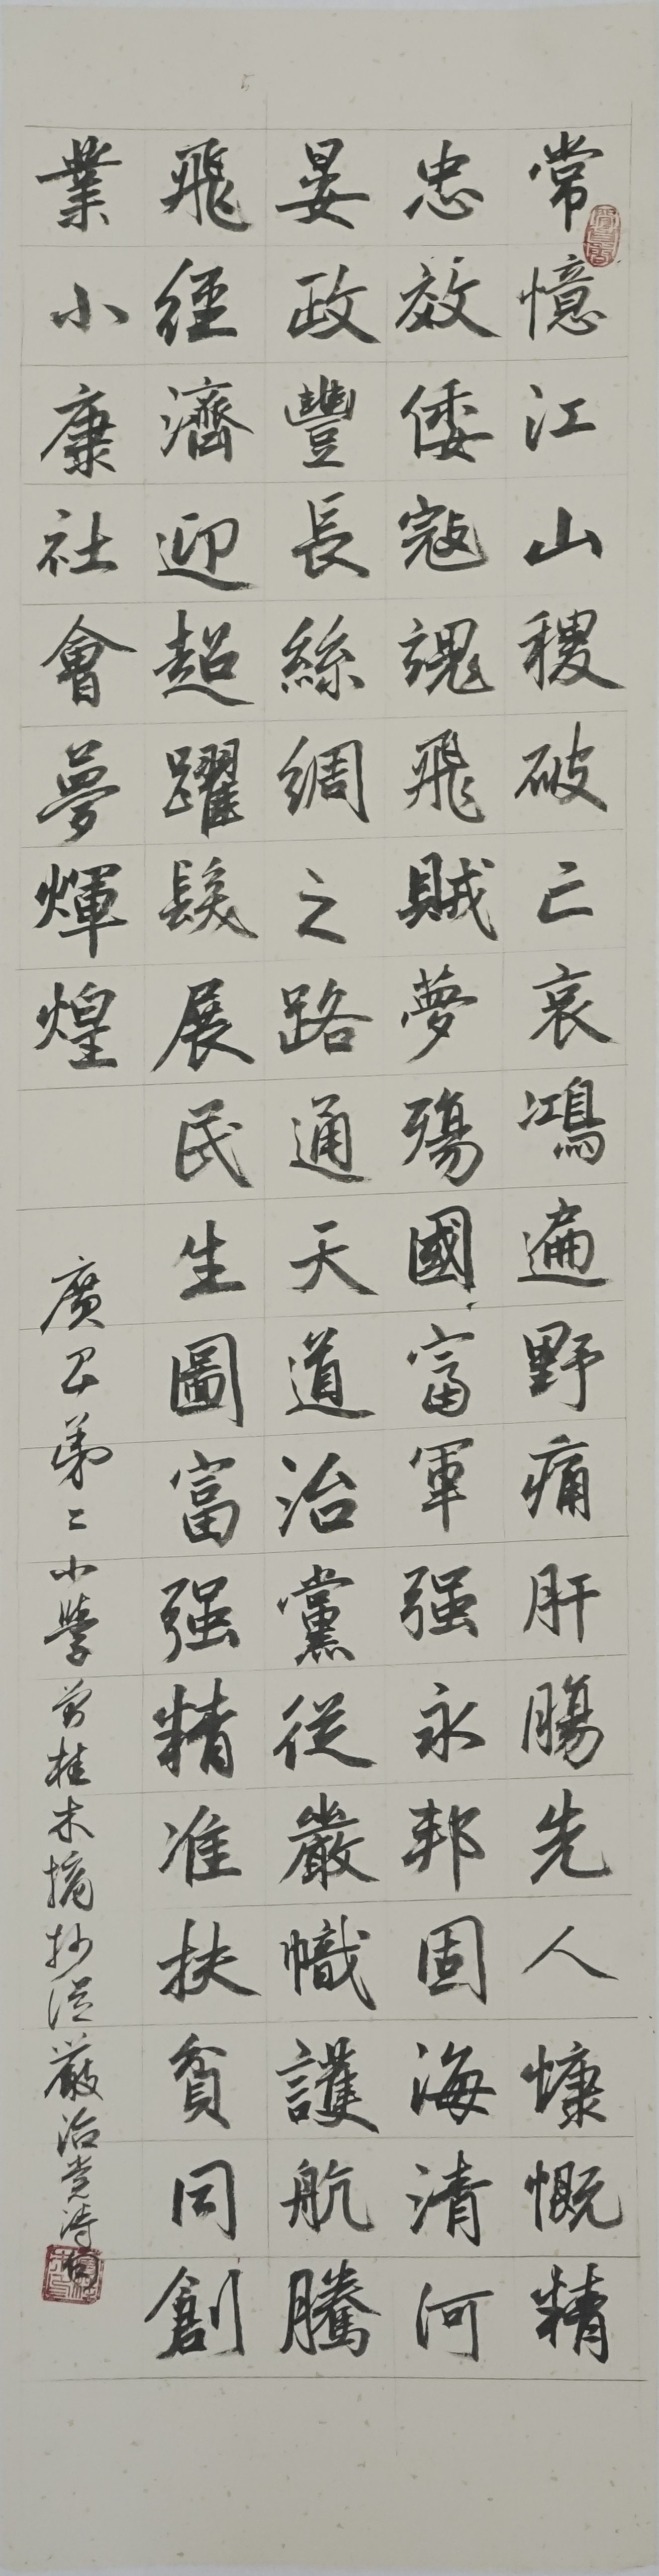 常憶江山稷破亡哀鴻遍野痛肝腸先人慷慨精
忠效倭寇魂飛賊夢殤國富軍强永邦固海清河
晏政豐長絲綢之路通天道治黨從嚴幟護航騰
飛經濟迎超躍發展民生圖富强精准扶貧同創
業小康社會夢輝煌
廣昌第二小學曾桂木摘抄從嚴治党詩句